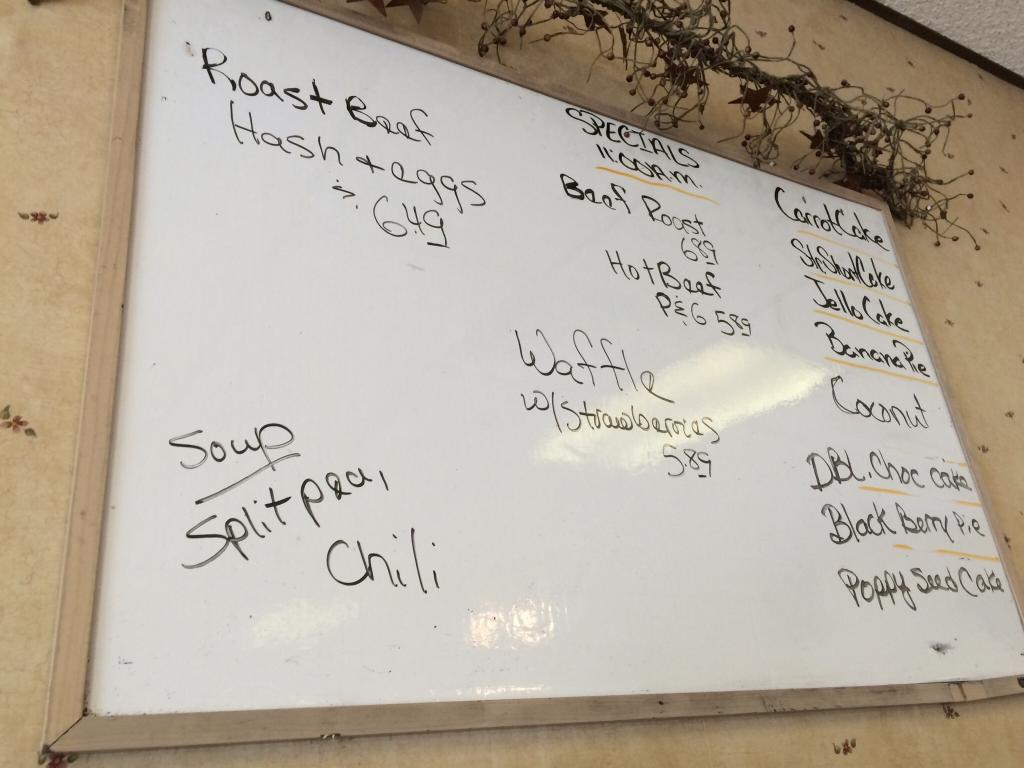 Roast Beef
Hash + eggs
6.49
Soup
Split pea,
Chili
SPECIALS
11:00A.M.
Beef Roast
6.89
Hot Beef
P&G 5.89
Waffle
w/Strawberries
5.89
Carrot Cake
Str Short Cake
Jello Cake
Banana Pie
Coconut
DBL. Choc cake
Black Berry Pie
Poppy Seed Cake